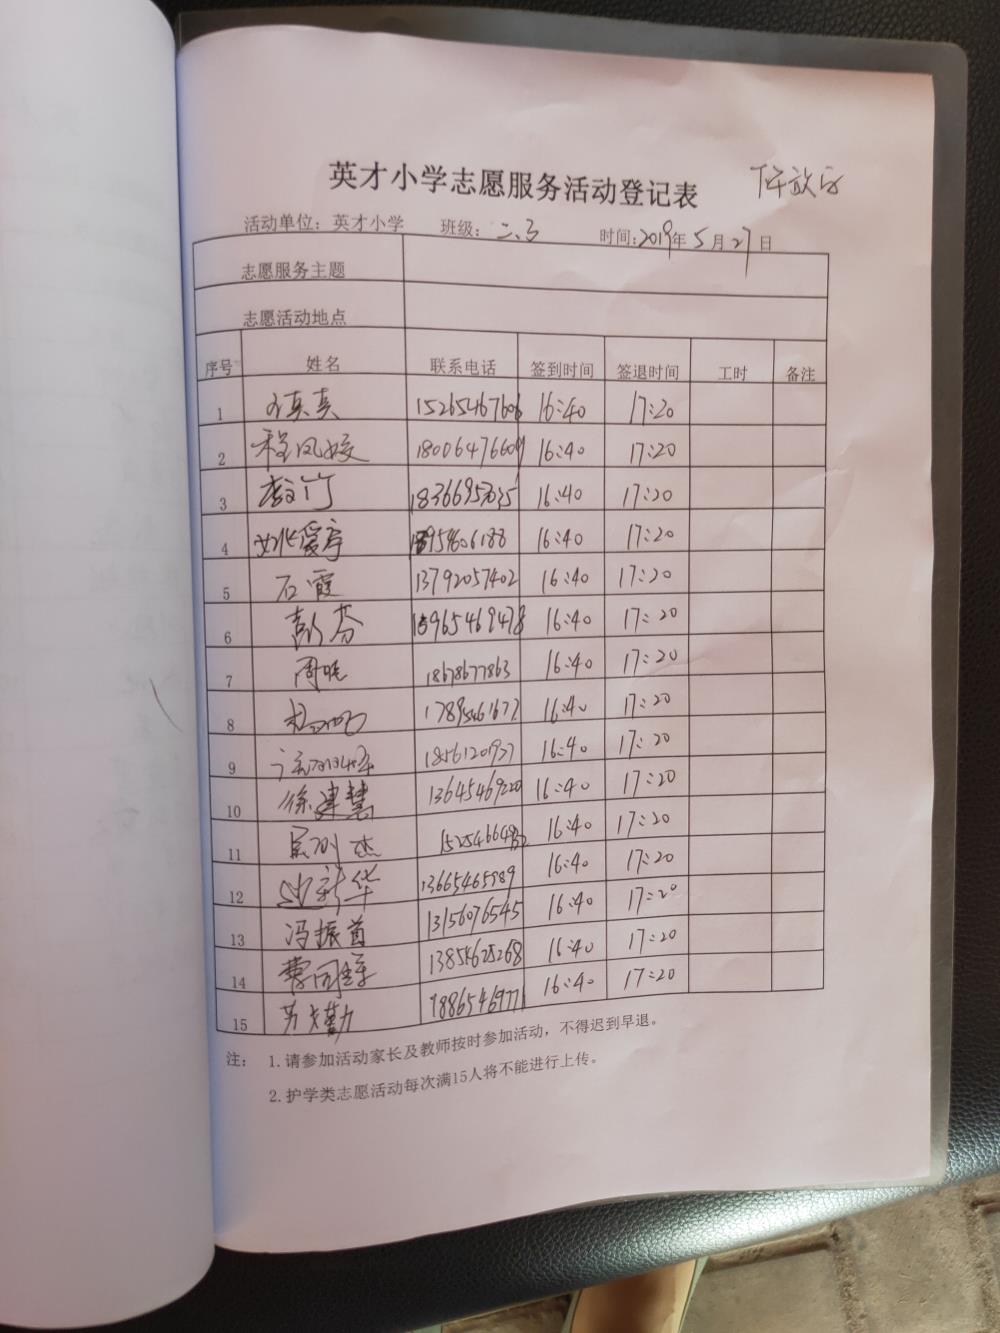 英才小学志愿服务活动登记表
活动单位：英才小学 班级：二.3 时间:2019年5月27日
志愿服务主题
志愿活动地点
序号 姓名 联系电话 签到时间 签退时间 工时 备注
1 真真 15265467606 16:40 17:20
2 程凤姣 18006476609 16:40 17:20
3 16:40 17:20
4 姚爱亭 16:40 17:20
5 石霞 13792057402 16:40 17:20
6 彭芬 15965469478 16:40 17:20
7 周晓 18678677863 16:40 17:20
8 17895461677 16:40 17:20
9 18561201937 16:40 17:20
10 徐建慧 13645469220 16:40 17:20
11 16:40 17:20
12 新华 13665465989 16:40 17:20
13 冯振首 13156076545 16:40 17:20
14 16:40 17:20
15 16:40 17:20
注： 1.请参加活动家长及教师按时参加活动，不得迟到早退。
2.护学类志愿活动每次满15人将不能进行上传。